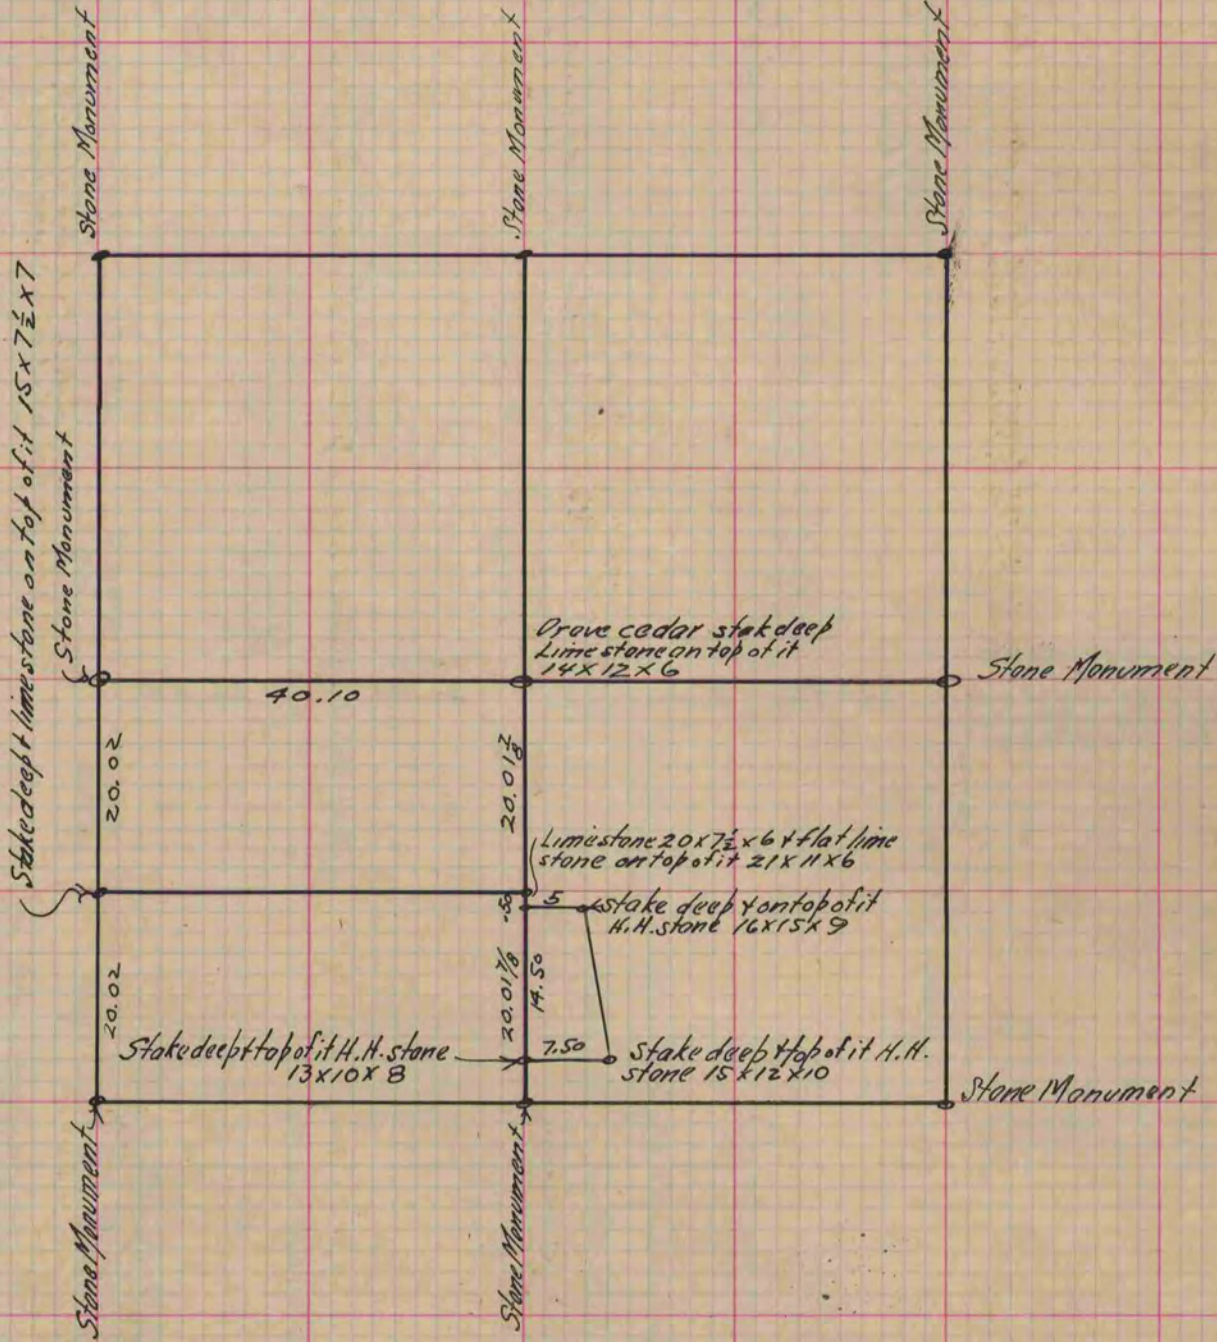 Stone Monument
Stone Monument
Stone Monument
Stake deep & lime stone on top of it 15 x 7½ x 7
Stone Monument
Drove cedar stak deep
Lime stone on top of it
14 x 12 x 6
Stone Monument
40.10
20.02
20.01⅞
Limestone 20 x 7½ x 6 & flat lime
stone on top of it 21 x 11 x 6
.50
5
stake deep & on top of it
H.H. stone 16 x 15 x 9
20.02
20.01⅞
14.50
Stake deep & top of it H.H. stone
13 x 10 x 8
7.50
Stake deep & top of it H.H.
stone 15 x 12 x 10
Stone Monument
Stone Monument
Stone Monument